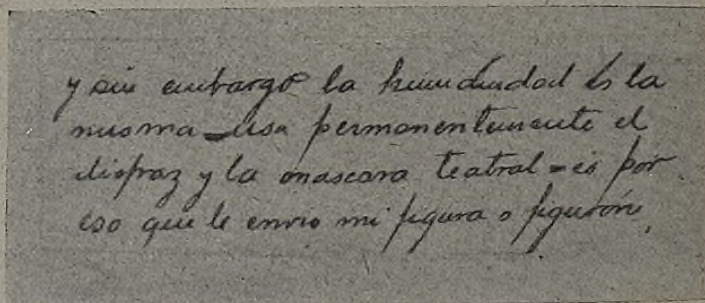 y sin embargo la humanidad es la
misma – usa permanentemente el
disfraz y la mascara teatral – es por
eso que le envio mi figura o figurón,